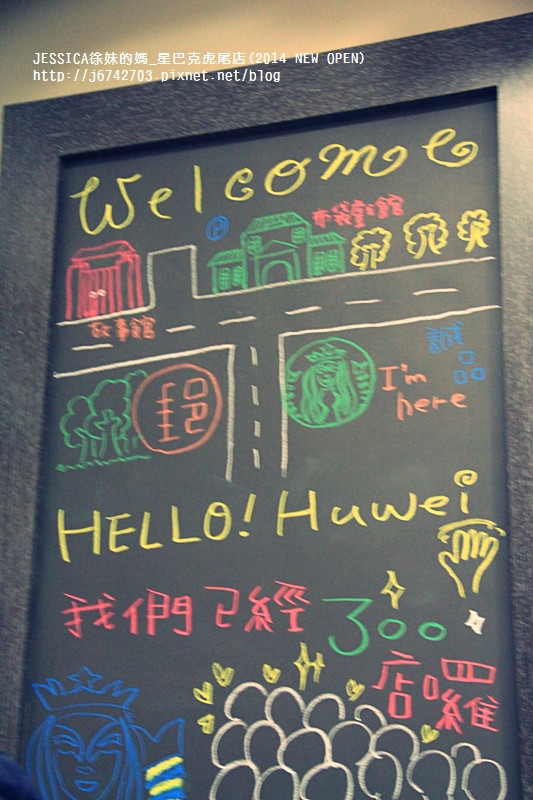 JESSICA徐妹的媽_星巴克虎尾店(2014 NEW OPEN)
http://j6742703.pixnet.net/blog
Welcome
P
布袋戲館
故事館
誠品
郵
I'm here
HELLO! Huwei
我們已經300
店囉